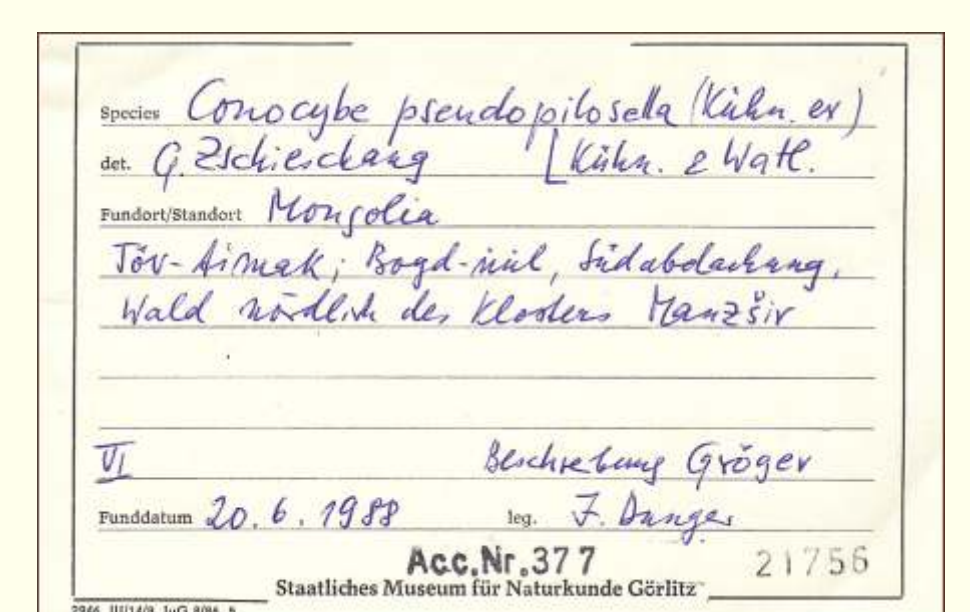 Species Conocybe pseudopilosella (Kühn. ex)
det. G. Zschieschang [Kühn. & Watl.
Fundort/Standort Mongolia
Töv-Aimak; Bogd-uul, Südabdachung,
Wald nördlich des Klosters Manzšir
VI Beschreibung Gröger
Funddatum 20. 6. 1988 leg. J. Dunger
Acc.Nr.377 21756
Staatliches Museum für Naturkunde Görlitz